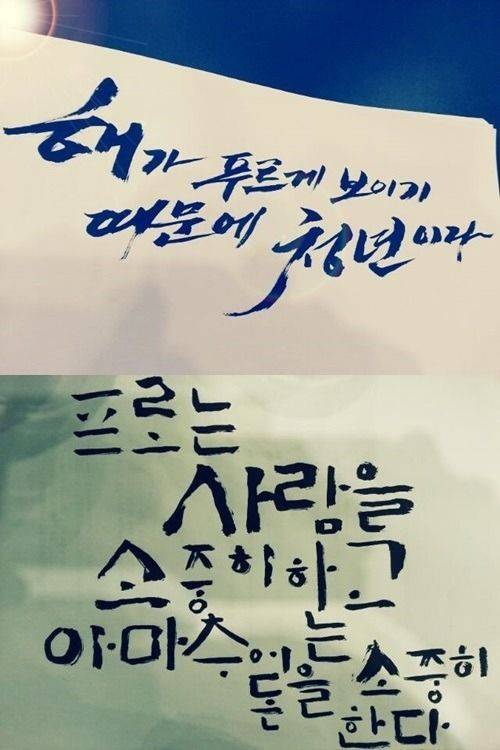 해가 푸르게 보이기
때문에 청년이라
프로는
사람을
소중히 하고
아마추어는
돈을 소중히
한다.